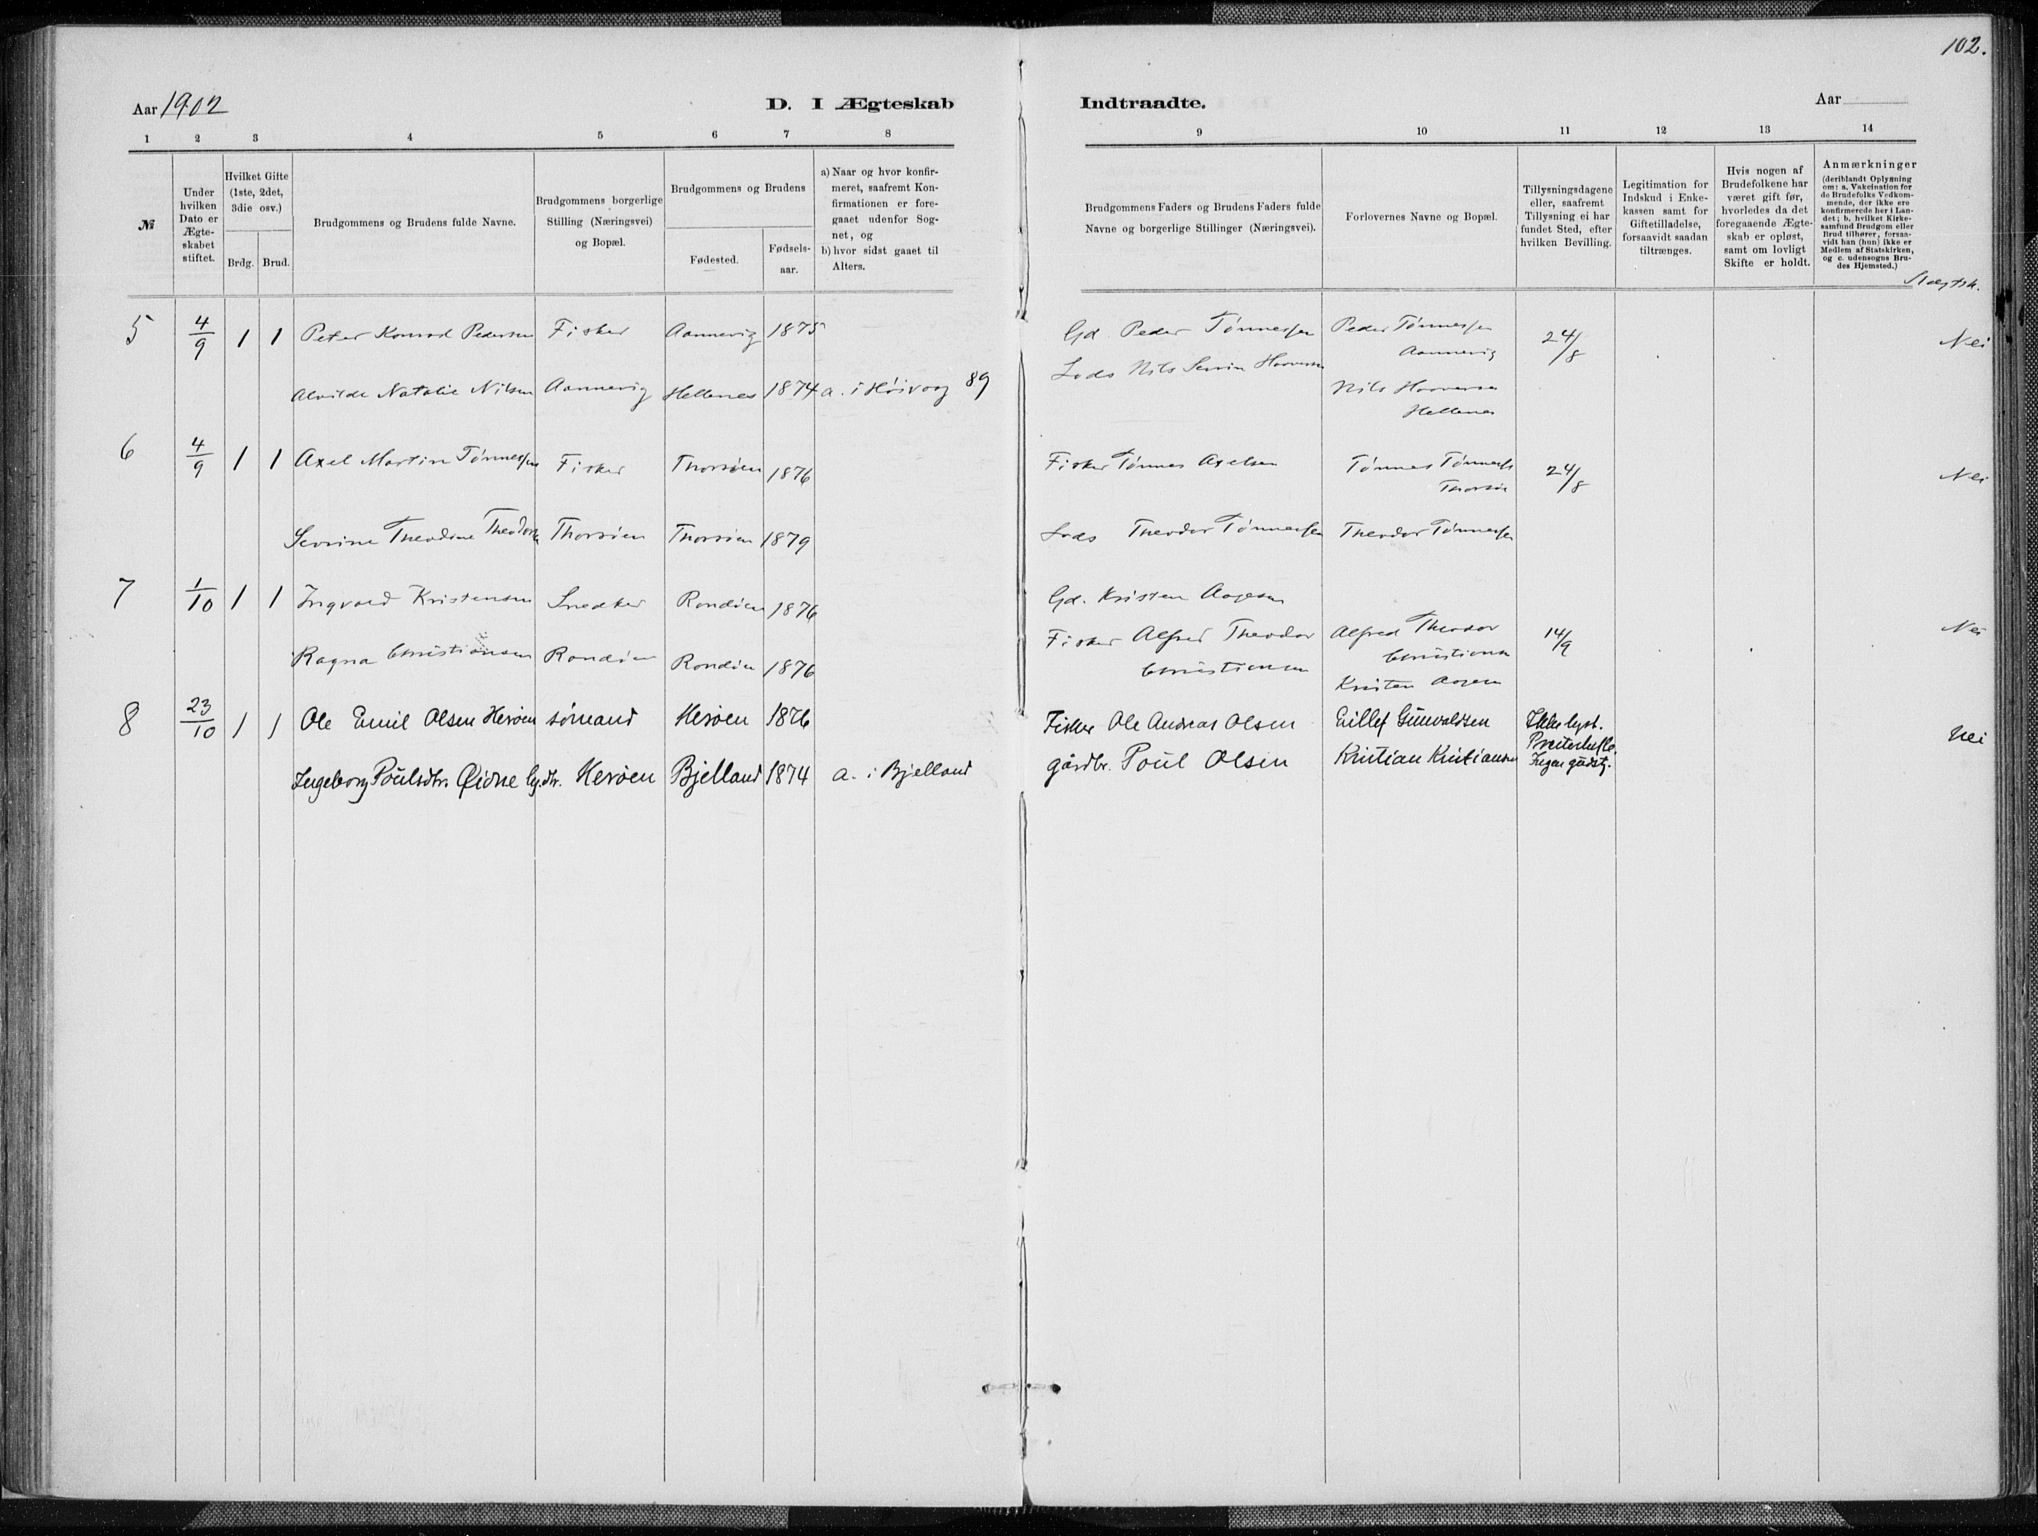 102.
Aar 1902
D. I Ægteskab Indtraadte.
Aar
1 2 3 4 5 6 7 8 9 10 11 12 13 14
№
Under hvilken Dato er Ægte-skabet stiftet.
Hvilket Gifte (1ste, 2det, 3die osv.)
Brdg. Brud.
Brudgommens og Brudens fulde Navne.
Brudgommens borgerlige Stilling (Næringsvei) og Bopæl.
Brudgommens og Brudens
Fødested.
Fødsels-aar.
a) Naar og hvor konfir-meret, saafremt Kon-firmationen er fore-gaaet udenfor Sog-net, og
b) hvor sidst gaaet til Alters.
Brudgommens Faders og Brudens Faders fulde Navne og borgerlige Stillinger (Næringsvei).
Forlovernes Navne og Bopæl.
Tillysningsdagene eller, saafremt Tillysning ei har fundet Sted, efter hvilken Bevilling.
Legitimation for Indskud i Enke-kassen samt for Giftetilladelse, forsaavidt saadan tiltrænges.
Hvis nogen af Brudefolkene har været gift før, hvorledes da det foregaaende Ægte-skab er opløst, samt om lovligt Skifte er holdt.
Anmærkninger (deriblandt Oplysning om: a. Vakcination for de Brudefolks Vedkom-mende, der ikke ere konfirmerede her i Lan-det; b. hvilket Kirke-samfund Brudgom eller Brud tilhører, forsaa-vidt han (hun) ikke er Medlem af Statskirken, og c. udensogns Bru-des Hjemsted.)
Slægtsk.
5 4/9 1 1 Peter Konrad Pedersen Fisker Aannevig 1875 Gd. Peder Tønnessen Peder Tønnessen Aannevig 24/8 Nei
Alvilde Natalie Nilsen Aannevig Hellenes 1874 a. i Høivaag 89 Lods Nils Severin Haavorsen Nils Haavorsen Hellenes
6 4/9 1 1 Axel Martin Tønnessen Fisker Thorsøen 1876 Fisker Tønnes Axelsen Tønnes Tønness Thorsøe 24/8 Nei
Severine Theodine Theodorsen Thorsøen Thorsøen 1879 Lods Theodor Tønnessen Theodor Tønnessen
7 1/10 1 1 Ingvald Kristensen Snedker Randøen 1876 Gd. Kristen Aagesen
Ragna Christiansen Randøen Randøen 1876 Fisker Alfred Theodor Christiansen Alfred Theodor Christiansen 14/9 Nei
Kristen Aagesen
8 23/10 1 1 Ole Emil Olsen Herøen sømand Herøen 1876 Fisker Ole Andreas Olsen Eillef Gunvaldsen Ikke lyst. Nei
Ingeborg Poulsdtr. Øidne Herøen Bjelland 1874 a. i Bjelland gårdbr. Poul Olsen Kristian Kristiansen Ingen